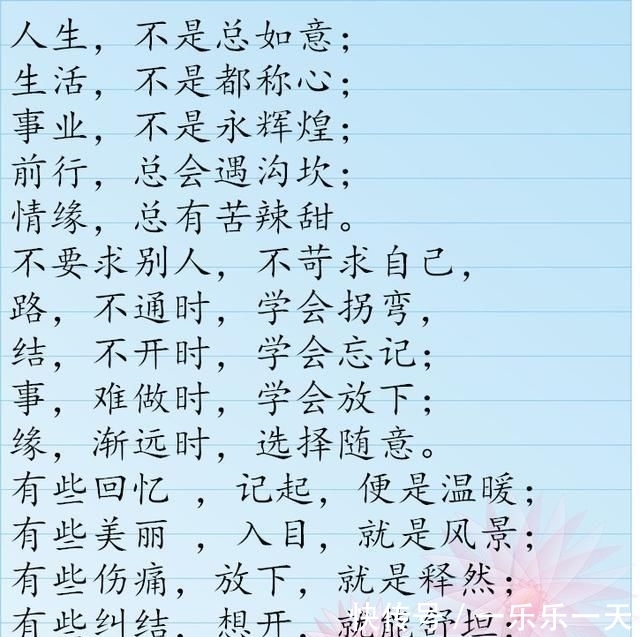 人生，不是总如意；
生活，不是都称心；
事业，不是永辉煌；
前行，总会遇沟坎；
情缘，总有苦辣甜。
不要求别人，不苛求自己，
路，不通时，学会拐弯，
结，不开时，学会忘记；
事，难做时，学会放下；
缘，渐远时，选择随意。
有些回忆 ，记起，便是温暖；
有些美丽 ，入目，就是风景；
有些伤痛，放下，就是释然；
有些纠结，想开，就能舒坦；
快传号/一乐乐一天